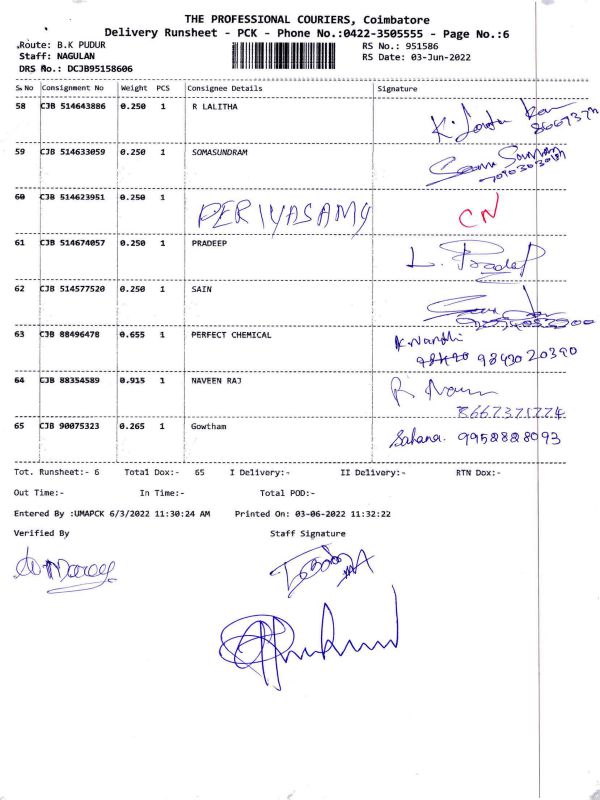 THE PROFESSIONAL COURIERS, Coimbatore
Delivery Runsheet - PCK - Phone No.:0422-3505555 - Page No.:6
Route: B.K PUDUR RS No.: 951586
Staff: NAGULAN RS Date: 03-Jun-2022
DRS No.: DCJB95158606
S.No Consignment No Weight PCS Consignee Details Signature
58 CJB 514643886 0.250 1 R LALITHA
59 CJB 514633059 0.250 1 SOMASUNDRAM
60 CJB 514623951 0.250 1 PERIYASAMY CN
61 CJB 514674057 0.250 1 PRADEEP L. Pradeep
62 CJB 514577520 0.250 1 SAIN
63 CJB 88496478 0.655 1 PERFECT CHEMICAL K.Nandhi
98430 20390
64 CJB 88354589 0.915 1 NAVEEN RAJ R
8667371774
65 CJB 90075323 0.265 1 Gowtham Sahana. 9958828093
Tot. Runsheet:- 6 Total Dox:- 65 I Delivery:- II Delivery:- RTN Dox:-
Out Time:- In Time:- Total POD:-
Entered By :UMAPCK 6/3/2022 11:30:24 AM Printed On: 03-06-2022 11:32:22
Verified By Staff Signature